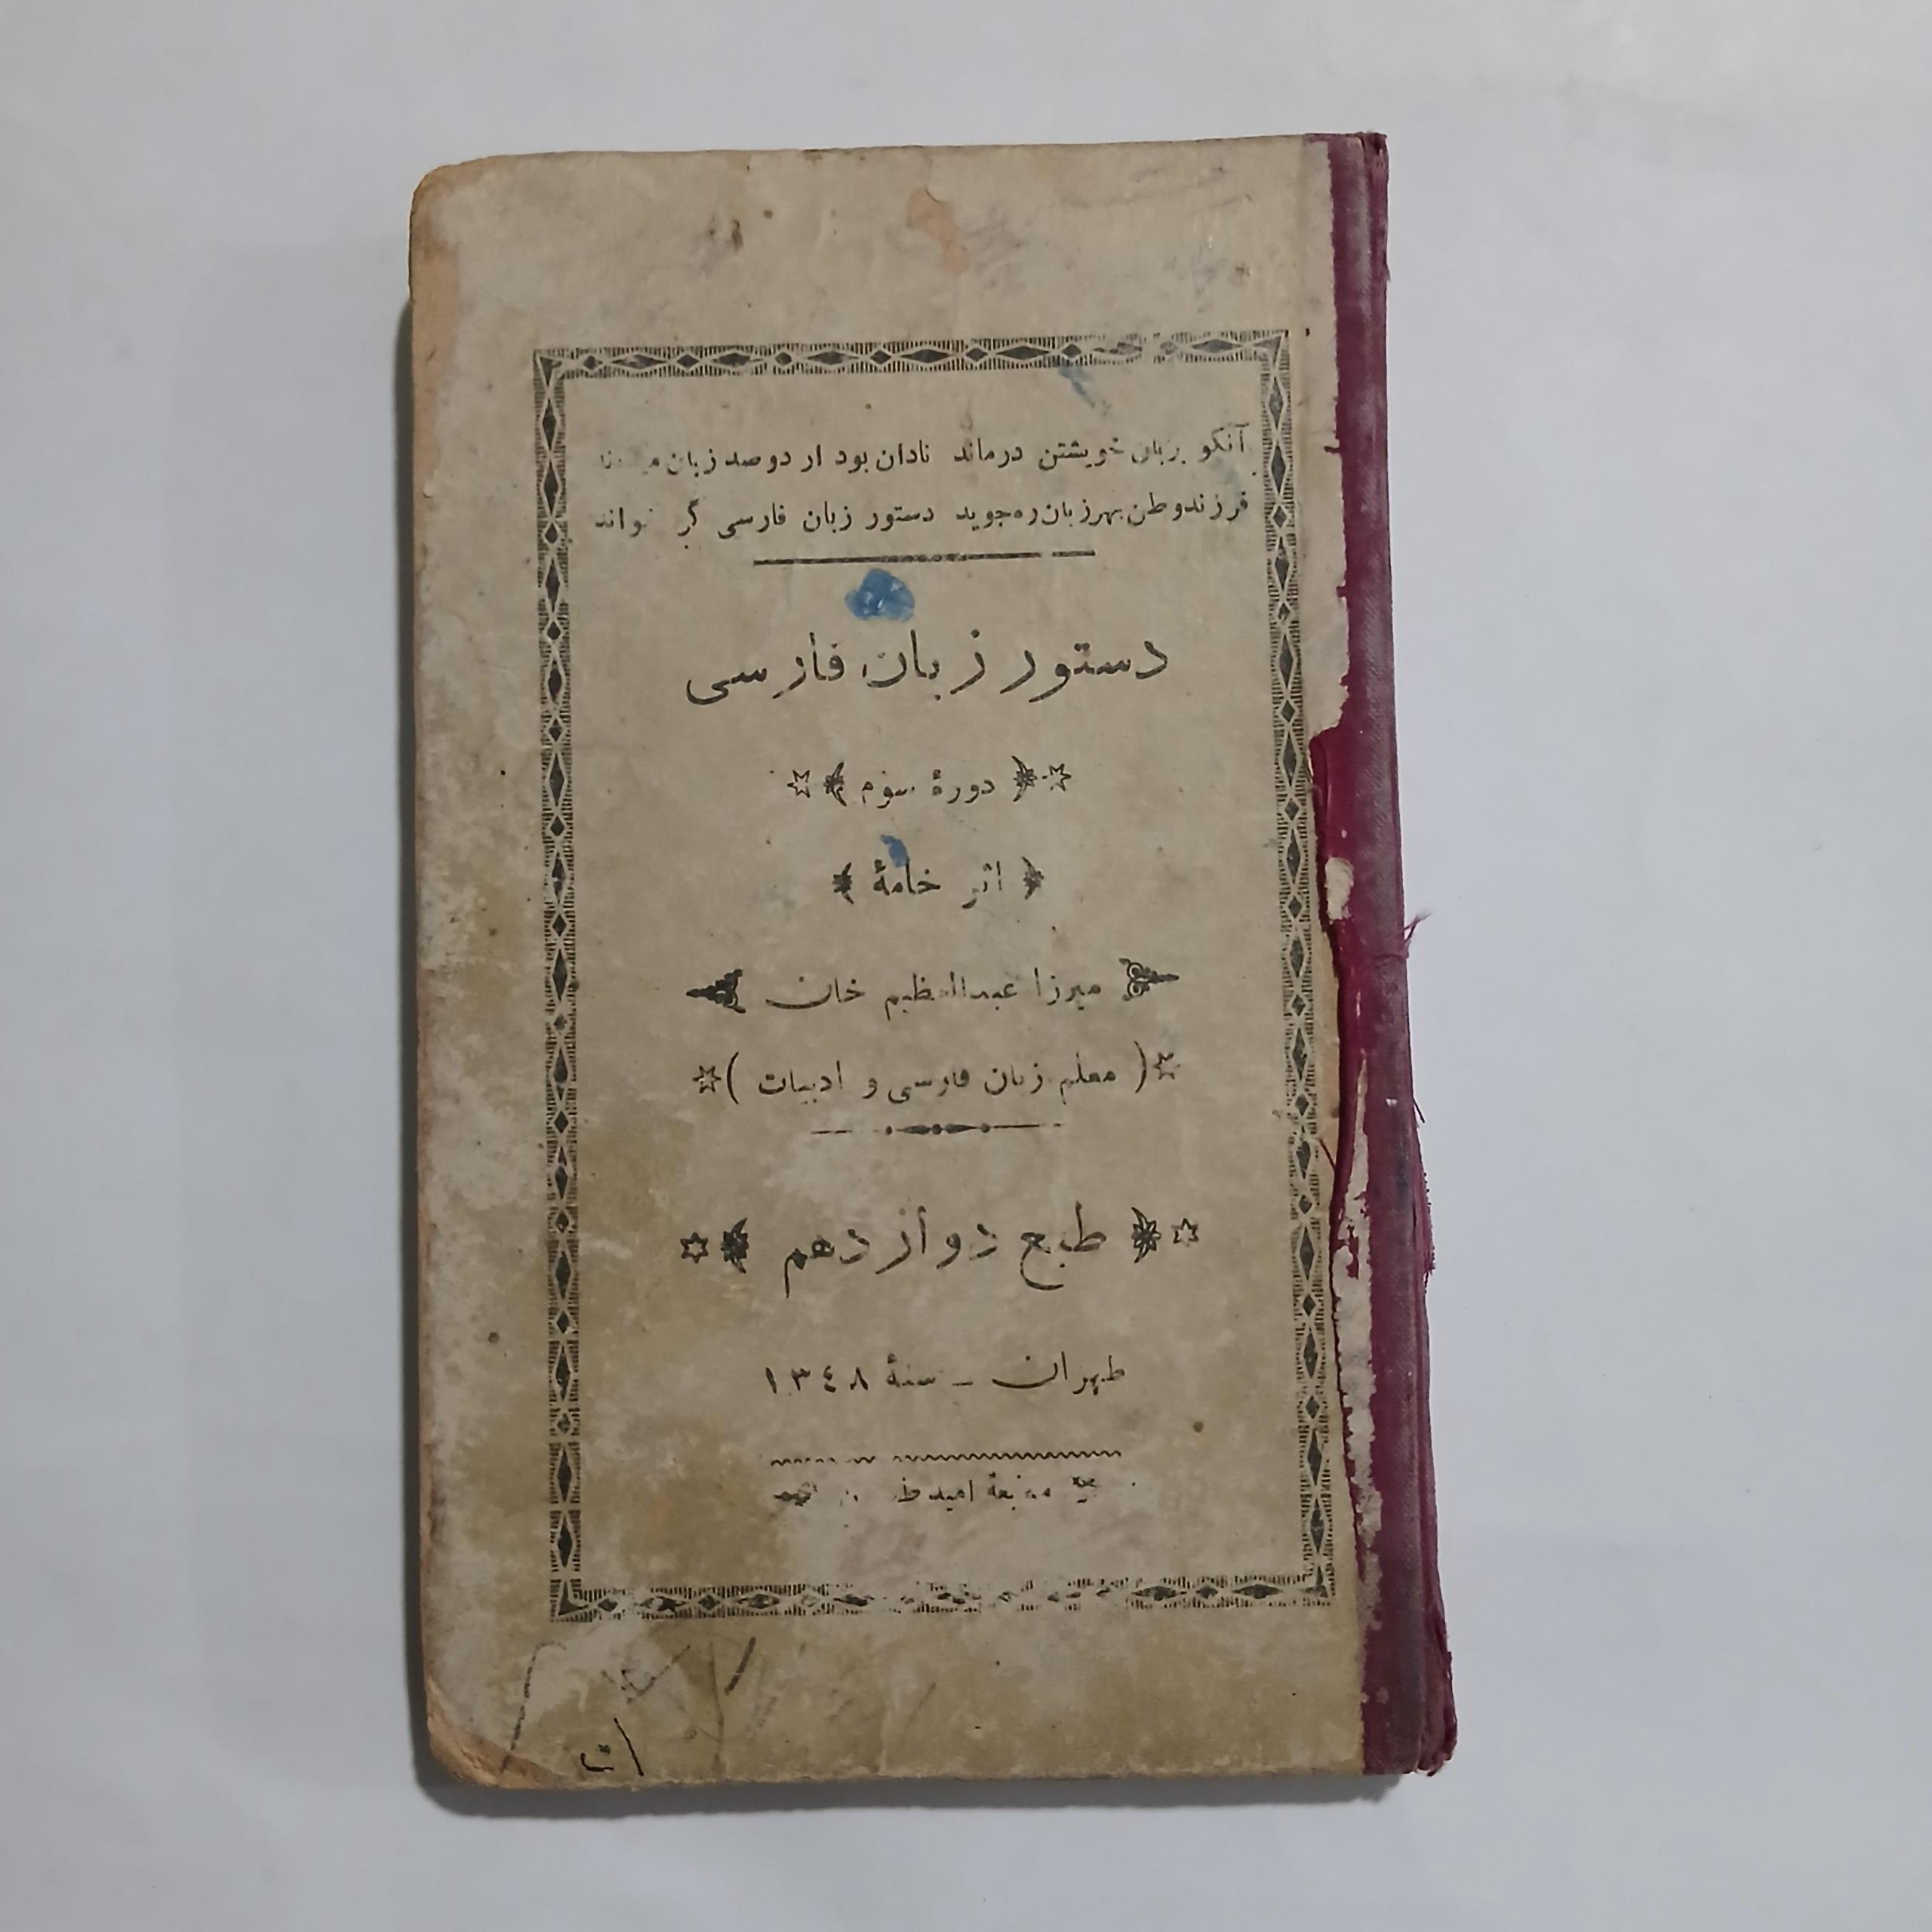 آنکو بزبان خویشتن درماند نادان بود ار دو صد زبان
فرزند وطن بهر زبان ره جوید دستور زبان فارسی گر
دستور زبان فارسی
دورهٔ سوم
اثر خامهٔ
میرزا عبدالعظیم خان
( معلم زبان فارسی و ادبیات )
طبع دوازدهم
طهران - سنهٔ ١٣٤٨
امید